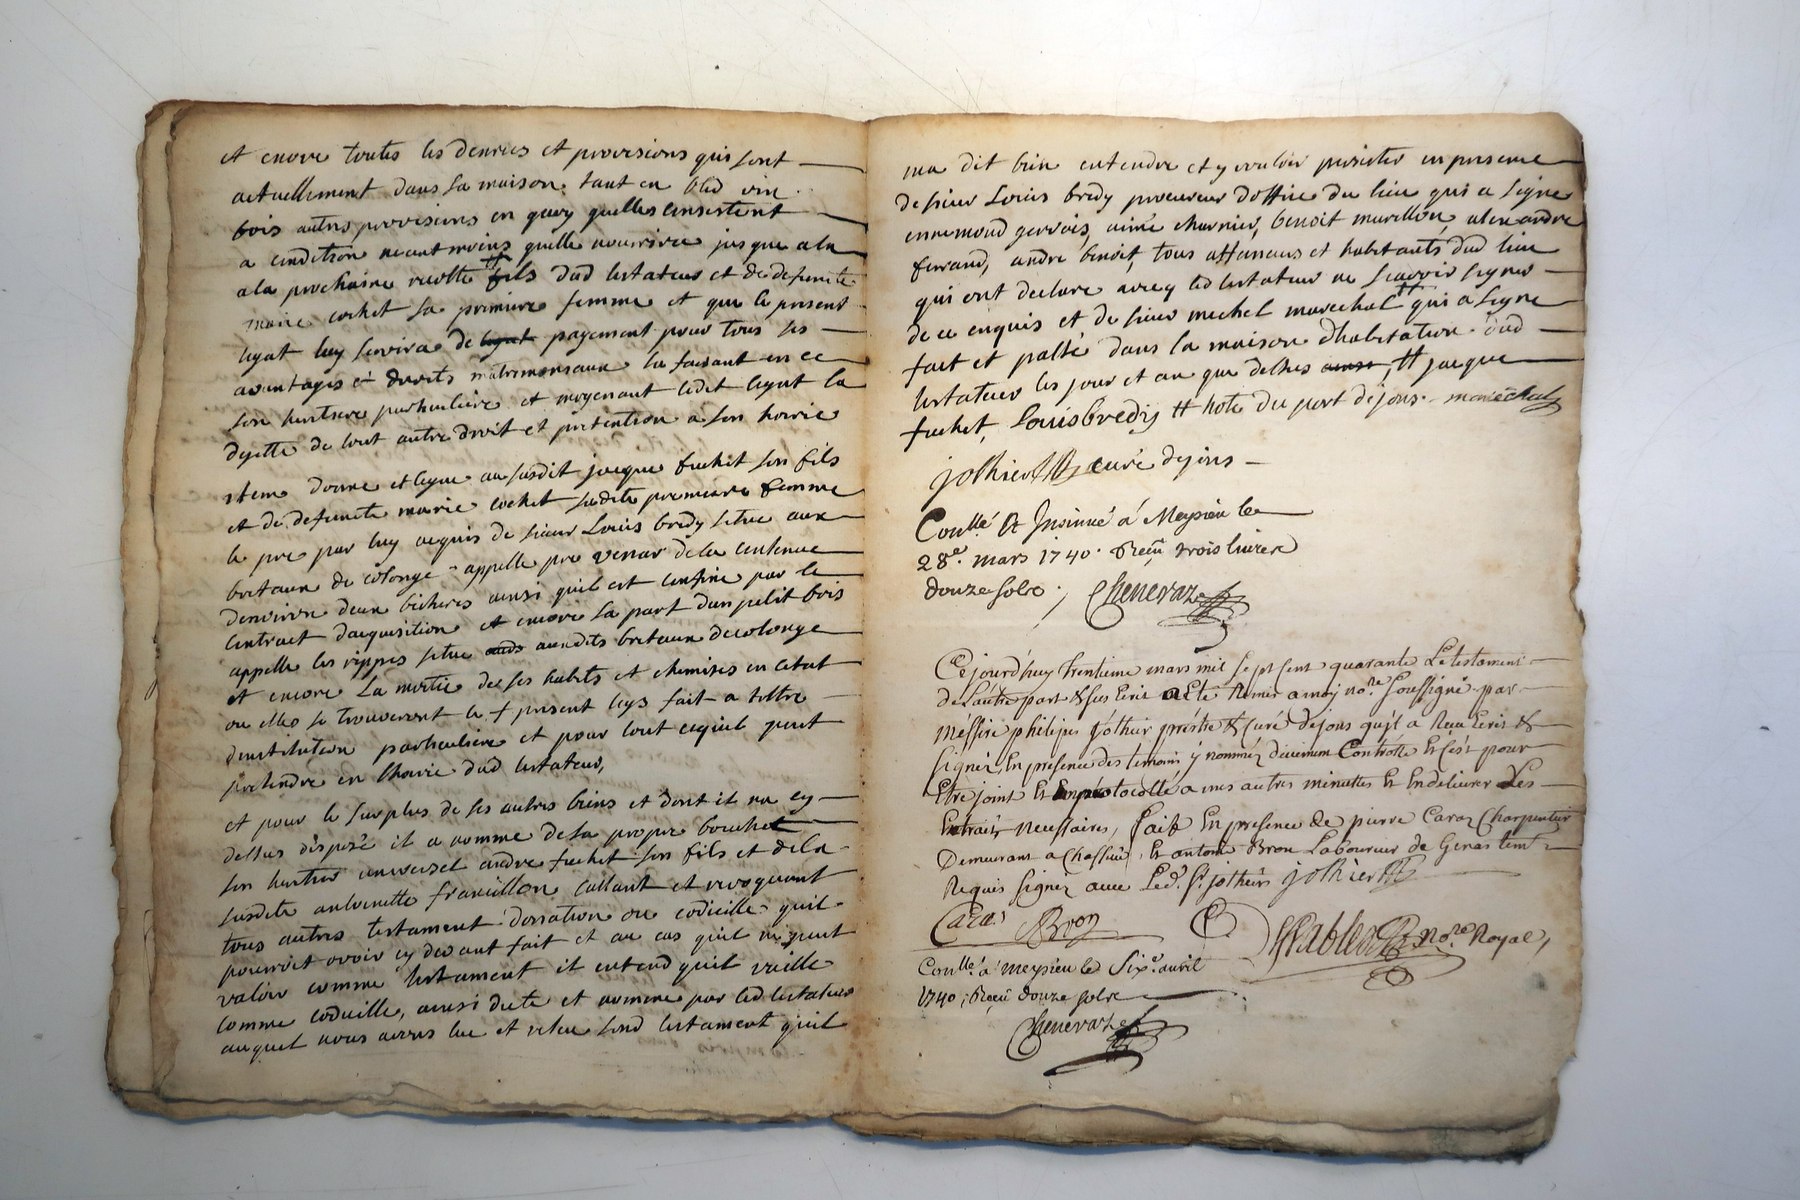 et encore toutes les denrées et provisions qui sont
actuellement dans sa maison tant en bled vin
bois autres provisions en quoy quelles consistent
a condition neantmoins quelle nourrira jusque a la
a la prochaine recolte # fils dud testateur et de defuncte
marie cochet sa premiere femme et que le present
legat luy servira de legat payement pour tous ses
avantages et droits matrimoniaux la faisant en ce
son heritiere particuliere et moyenant ledit legat la
dejette de tout autre droit et pretention a son hoirie
item donne et legue au susdit jacque fuchet son fils
et de defuncte marie cochet sadite premiere femme
le pre par luy acquis de sieur Louis bredy situe aux
breteaux de colonge appelle pre venar de la contenue
denviron deux bicherés ainsi quil est confiné par le
contract dacquisition et encore sa part dun petit bois
appelle les rippes situe auds auxdits breteaux de colonge
et encore la moitie de ses habits et chemises en letat
ou elles se trouveront le + present legs fait a tiltre
dinstitution particuliere et pour tout cequil peut
pretendre en lhoirie dud testateur,
et pour le surplus de ses autres biens et dont il na cy
dessus disposé il a nomme de sa propre bouche
son heritier universel andre fuchet son fils et de la
susdite antoinette francillon cassant et revoquant
tous autres testament donation ou codicille quil
pourroit avoir cy devant fait et au cas quil ne peut
valoir comme testament il entend quil vaille
comme codicille, ainsi dicte et nomme par led testateur
auquel nous avons lue et relue sond testament quil
ma dit bien entendre et y vouloir persister en presence
de sieur Louis bredy procureur doffice du lieu qui a signe
ennemond gervais, aimé charnier, benoit murillon, alexandre
ferrand, andre benoit, tous affaneurs et habitants dud lieu
qui ont declare avecq led testateur ne scavoir signer
de ce enquis et de sieur michel marechal # qui a signe
fait et passé dans la maison dhabitation dud
testateur les jour et an que dessus # jacque
fuchet, Louis bredy # hote du port dejons. marechal
jothier curé dejons
Conllé & Insinué á Meysieu le
28e. mars 1740. Reçu trois livres
douze sols; Cheneraz
Cejourd'huy trentieme mars mil sept cent quarante Le testament
de Lautre part & sus Ecrit a été Remis a moy nore. soussigné par
Messire philipes jothier prestre & curé dejons qu'jl a Reçu Ecrit &
signer, En présence des temoins y nommés düement Controllé Et Ce pour
Etre joint Et Emprotocollé a mes autres minuttes Et En delivrer Les
Extraits necessaires, fait En presence de pierre Caraz Charpentier
Demeurant a Chassieu, Et antoine Bron Laboureur de Genas tem:
Requis signez avec Led. Sr. jothier jothier
Caraz Bron
Nore. Royal,
Conllé. á Meysieu le Sixe. avril
1740, Reçu douze sols
Cheneraz